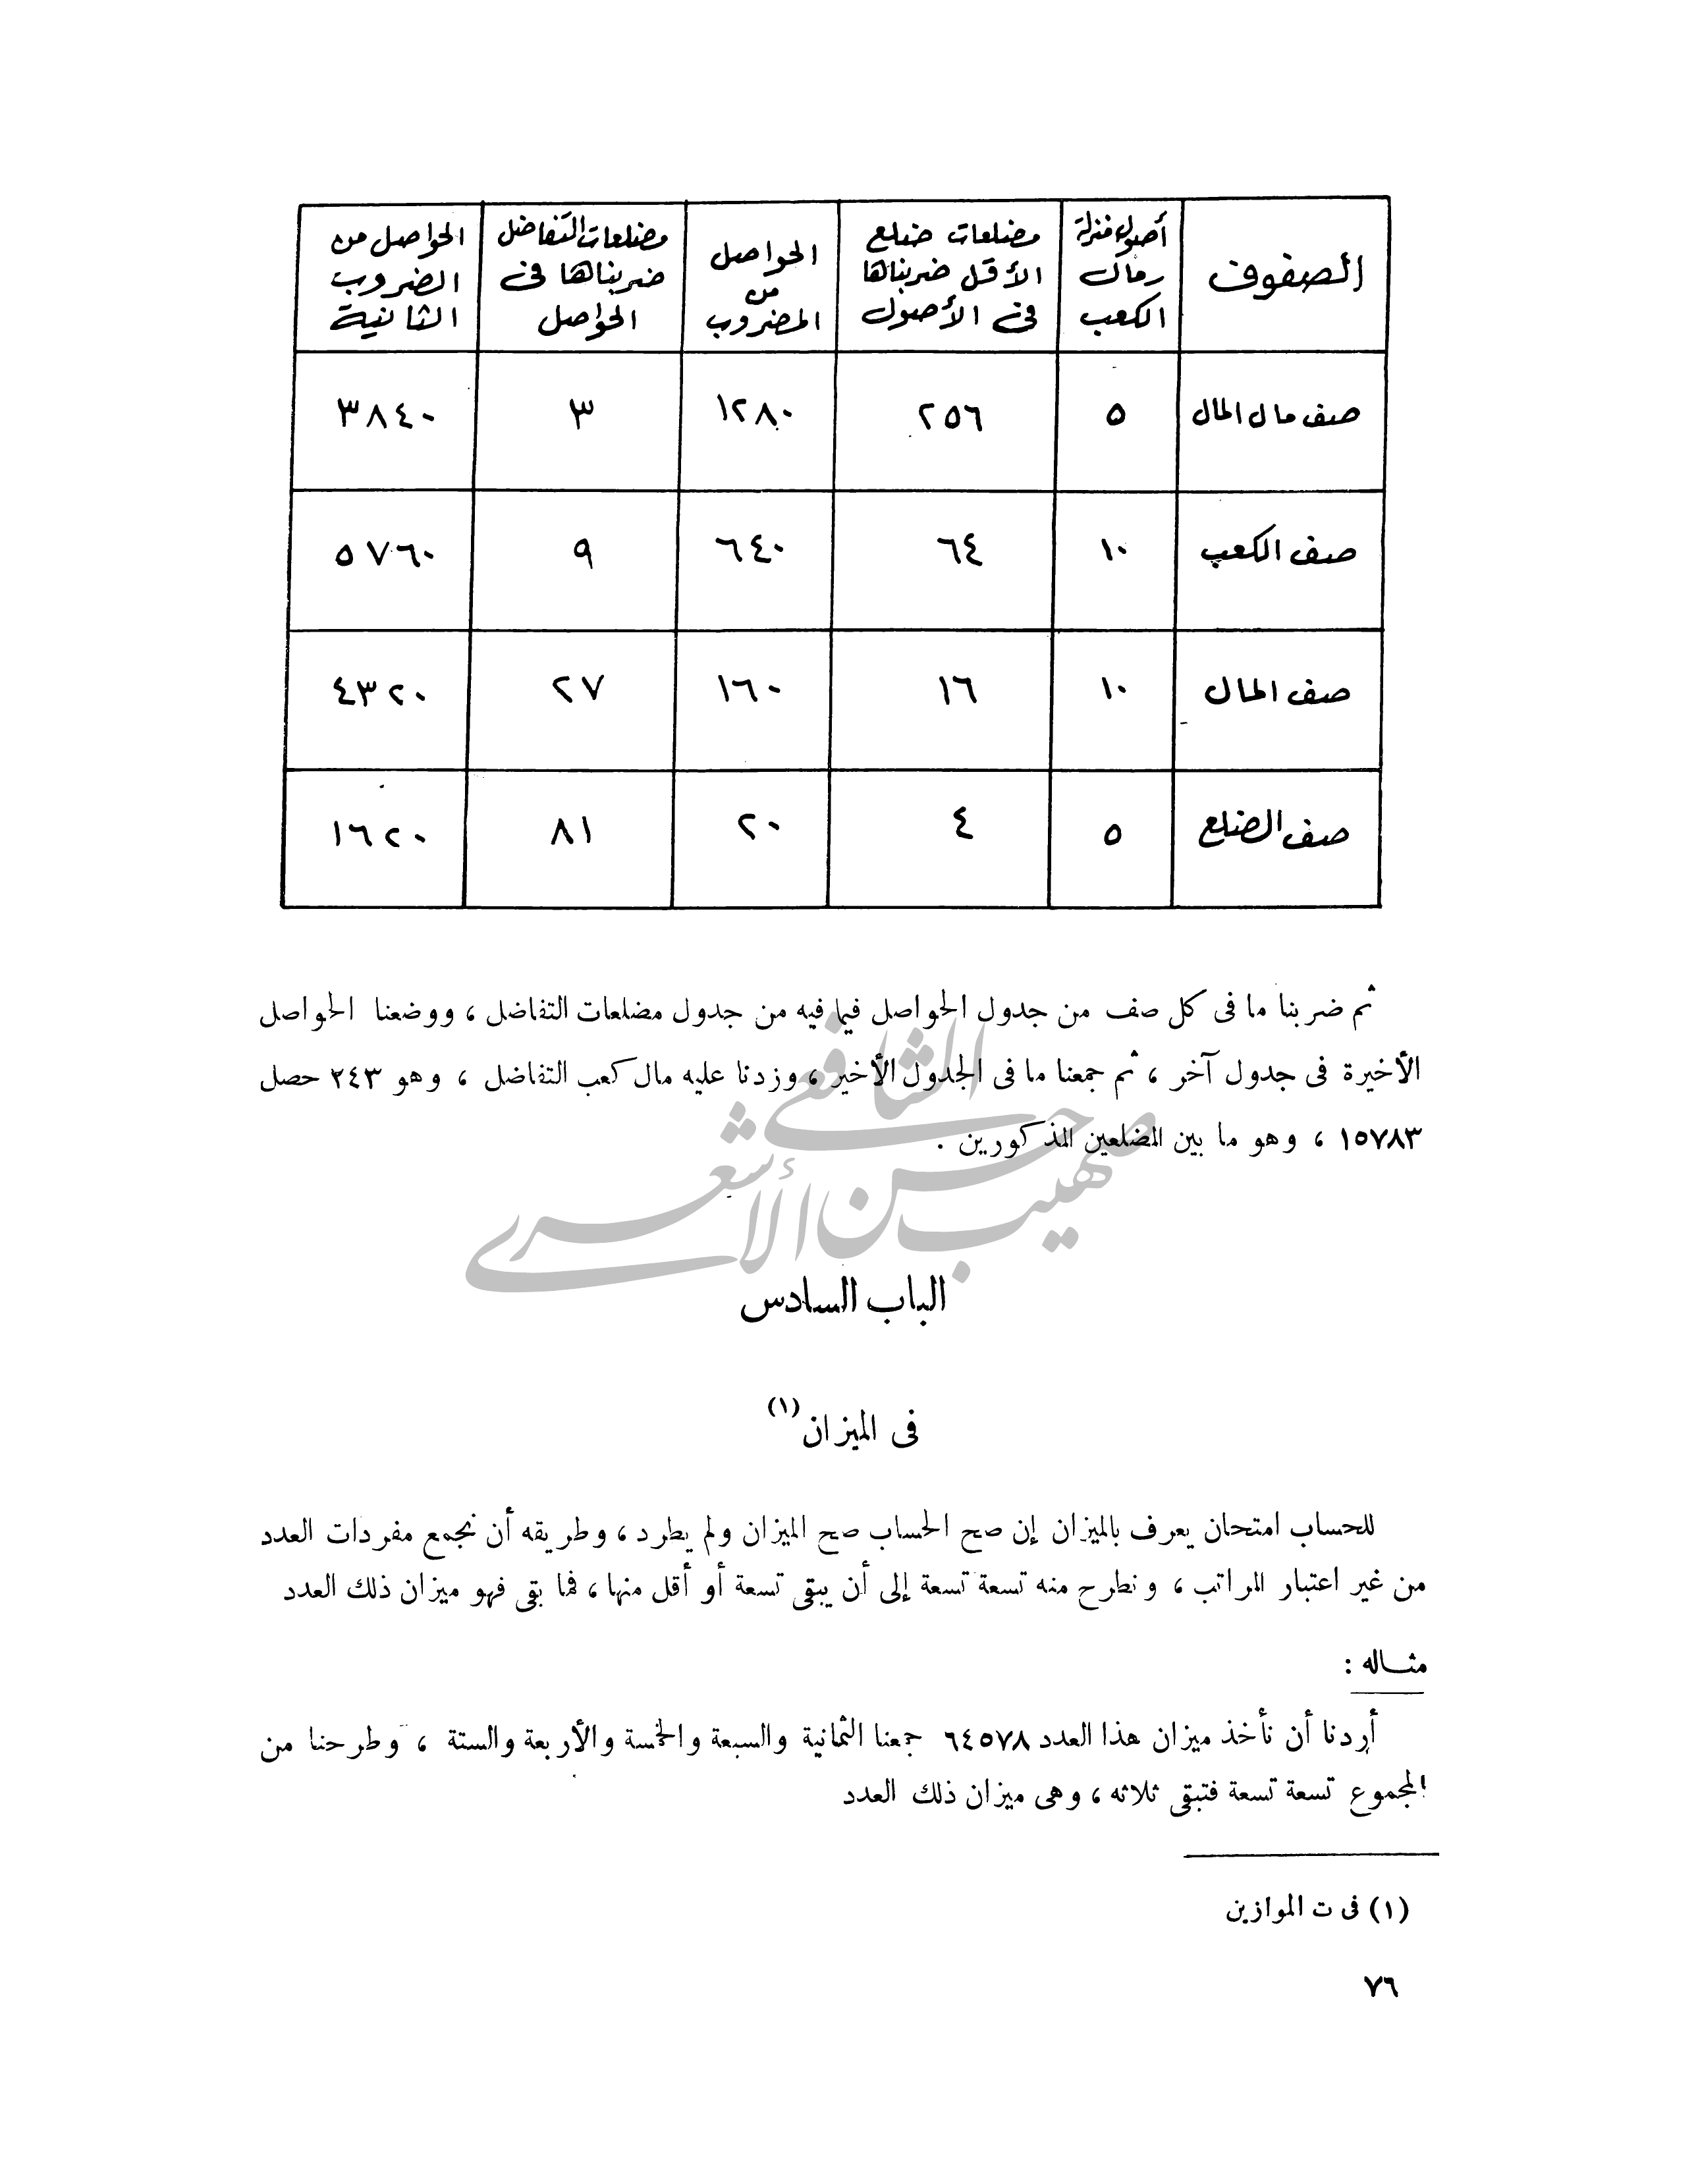 الصفوف | أصول منزلة مال الكعب | مضلعات ضلع الأقل ضربناها فى الأصول | الحواصل من المضروب | مضلعات التفاضل ضربناها فى الحواصل | الحواصل من الضروب الثانية
صف مال المال | ٥ | ٢٥٦ | ١٢٨٠ | ٣ | ٣٨٤٠
صف الكعب | ١٠ | ٦٤ | ٦٤٠ | ٩ | ٥٧٦٠
صف المال | ١٠ | ١٦ | ١٦٠ | ٢٧ | ٤٣٢٠
صف الضلع | ٥ | ٤ | ٢٠ | ٨١ | ١٦٢٠
ثم ضربنا ما فى كل صف من جدول الحواصل فيما فيه من جدول مضلعات التفاضل ، ووضعنا الحواصل
الأخيرة فى جدول آخر ، ثم جمعنا ما فى الجدول الأخير ، وزدنا عليه مال كعب التفاضل ، وهو ٢٤٣ حصل
١٥٧٨٣ ، وهو ما بين المضلعين المذكورين .
الشافعي
صهيب حسن الأشعري
الباب السادس
فى الميزان (١)
للحساب امتحان يعرف بالميزان إن صح الحساب صح الميزان ولم يطرد ، وطريقه أن نجمع مفردات العدد
من غير اعتبار المراتب ، ونطرح منه تسعة تسعة إلى أن يبقى تسعة أو أقل منها ، فما بقى فهو ميزان ذلك العدد
مثاله :
أردنا أن نأخذ ميزان هذا العدد ٦٤٥٧٨ جمعنا الثمانية والسبعة والخمسة والأربعة والستة ، وطرحنا من
المجموع تسعة تسعة فتبقى ثلاثه ، وهى ميزان ذلك العدد
(١) فى ت الموازين
٧٦